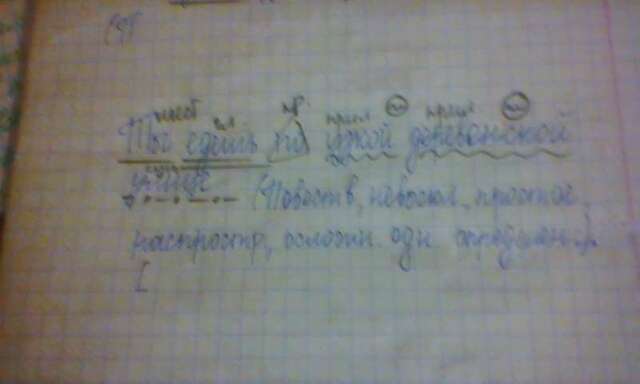 мест гл. пр. прил прил
Ты едешь по узкой деревенской
улице (Повеств, невоскл, простое,
распростр, осложн. одн. определен.).
[